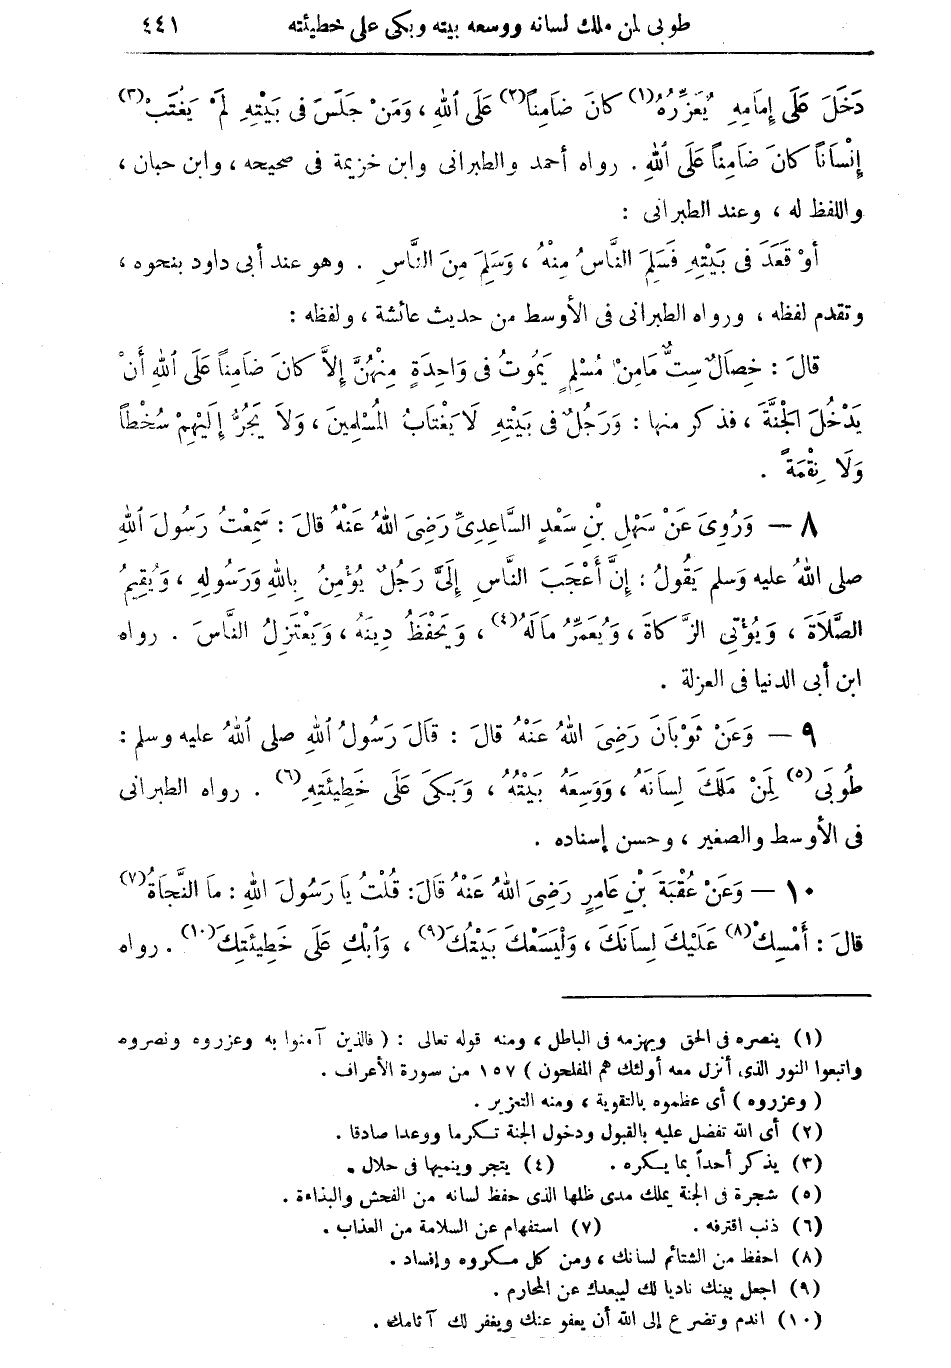 طوبى لمن ملك لسانه ووسعه بيته وبكى على خطيئته ٤٤١
دَخَلَ عَلَى إِمَامِهِ يُعَزِّرُهُ(١) كانَ ضَامِناً(٢) عَلَى اللهِ ، وَمَنْ جَلَسَ فى بَيْتِهِ لَمْ يَغْتَبْ(٣)
إِنْسَاناً كانَ ضَامِناً عَلَى اللهِ . رواه أحمد والطبرانى وابن خزيمة فى صحيحه ، وابن حبان ،
واللفظ له ، وعند الطبرانى :
أوْ قَعَدَ فى بَيْتِهِ فَسَلِمَ النَّاسُ مِنْهُ ، وَسَلِمَ مِنَ النَّاسِ . وهو عند أبى داود بنحوه ،
وتقدم لفظه ، ورواه الطبرانى فى الأوسط من حديث عائشة ، ولفظه :
قالَ : خِصاَلٌ سِتٌّ مَامِنْ مُسْلِمٍ يَمُوتُ فى وَاحِدَةٍ مِنْهُنَّ إِلاَّ كانَ ضَامِناً عَلَى اللهِ أَنْ
يَدْخُلَ الجَنَّةَ ، فذكر منها : وَرَجُلٌ فى بَيْتِهِ لَا يَغْتَابُ المُسْلِمِينَ ، وَلاَ يَجُرُّ إِلَيْهِمْ سُخْطاً
وَلَا نِقْمَةً .
٨ – وَرُوِىَ عَنْ سَهْلِ بْنِ سَعْدٍ السَّاعِدِىِّ رَضِىَ اللهُ عَنْهُ قالَ : سَمِعْتُ رَسُولَ اللهِ
صلى اللهُ عليه وَسلم يَقُولُ : إِنَّ أَعْجَبَ النَّاسِ إِلَىَّ رَجُلٌ يُؤْمِنُ بِاللهِ وَرَسُولِهِ ، وَيُقِيمُ
الصَّلَاةَ ، وَيُؤْتِى الزَّكاةَ ، وَيُعَمِّرُ مَالَهُ(٤) ، وَيَحْفَظُ دِينَهُ ، وَيَعْتَزِلُ النَّاسَ . رواه
ابن أبى الدنيا فى العزلة .
٩ – وَعَنْ ثَوْبَانَ رَضِىَ اللهُ عَنْهُ قالَ : قَالَ رَسُولُ اللهِ صلى اللهُ عليه وسلم :
طُوبَى(٥) لِمَنْ مَلَكَ لِسَانَهُ ، وَوَسِعَهُ بَيْتُهُ ، وَبَكَى عَلَى خَطِيئَتِهِ(٦) . رواه الطبرانى
فى الأوسط والصغير ، وحسن إسناده .
١٠ – وَعَنْ عُقْبَةَ بْنِ عَامِرٍ رَضِىَ اللهُ عَنْهُ قَالَ: قُلْتُ يَا رَسُولَ اللهِ : مَا النَّجَاةُ(٧)
قالَ : أَمْسِكْ(٨) عَلَيْكَ لِسَانَكَ ، وَلْيَسَعْكَ بَيْتُكَ(٩) ، وَابْكِ عَلَى خَطِيئَتِكَ(١٠) . رواه
(١) ينصره فى الحق ويهزمه فى الباطل ، ومنه قوله تعالى : ( فالذين آمنوا به وعزروه ونصروه
واتبعوا النور الذى أنزل معه أولئك هم المفلحون ) ١٥٧ من سورة الأعراف .
( وعزروه ) أى عظموه بالتقوية ، ومنه التعزير .
(٢) أى الله تفضل عليه بالقبول ودخول الجنة تكرما ووعدا صادقا .
(٣) يذكر أحداً بما يكره . (٤) يتجر وينميها فى حلال .
(٥) شجرة فى الجنة يملك مدى ظلها الذى حفظ لسانه من الفحش والبذاءة .
(٦) ذنب اقترفه . (٧) استفهام عن السلامة من العذاب .
(٨) احفظ من الشتائم لسانك ، ومن كل مكروه وإفساد .
(٩) اجعل بيتك ناديا لك ليبعدك عن المحارم .
(١٠) اندم وتضرع إلى الله أن يعفو عنك ويغفر لك آثامك .